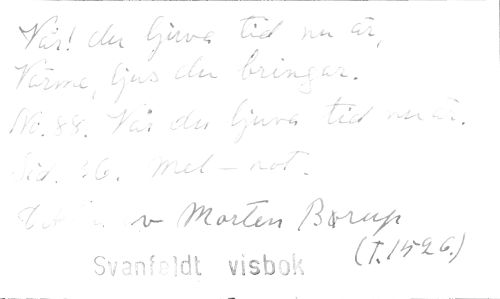 Vår! du ljuva tid nu är,
Värme, ljus du bringar.
No. 88. Vår du ljuva tid nu är.
Sid. 26. Mel – not.
av Morten Børup
(†.1526.)
Svanfeldt visbok